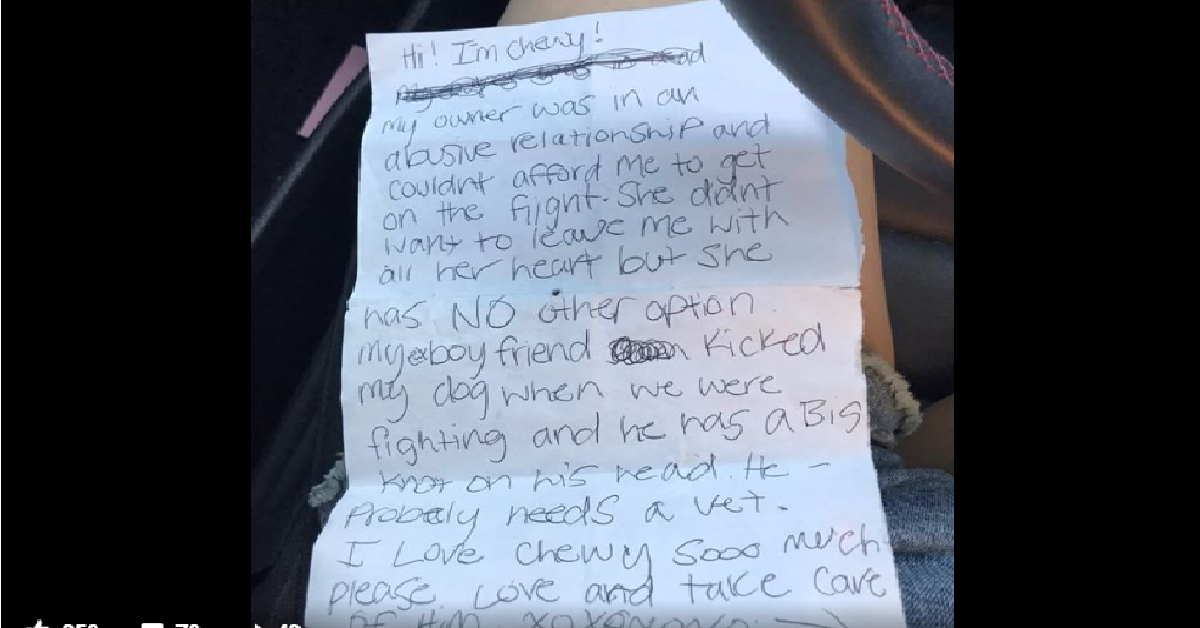 Hi! I'm chewy!
My owner was in an
abusive relationship and
couldnt afford me to get
on the flight. She didnt
want to leave me with
all her heart but she
has NO other option.
My exboyfriend kicked
my dog when we were
fighting and he has a Big
knot on his head. He
probably needs a vet.
I Love chewy sooo much
please love and take care
of him xoxoxoxo